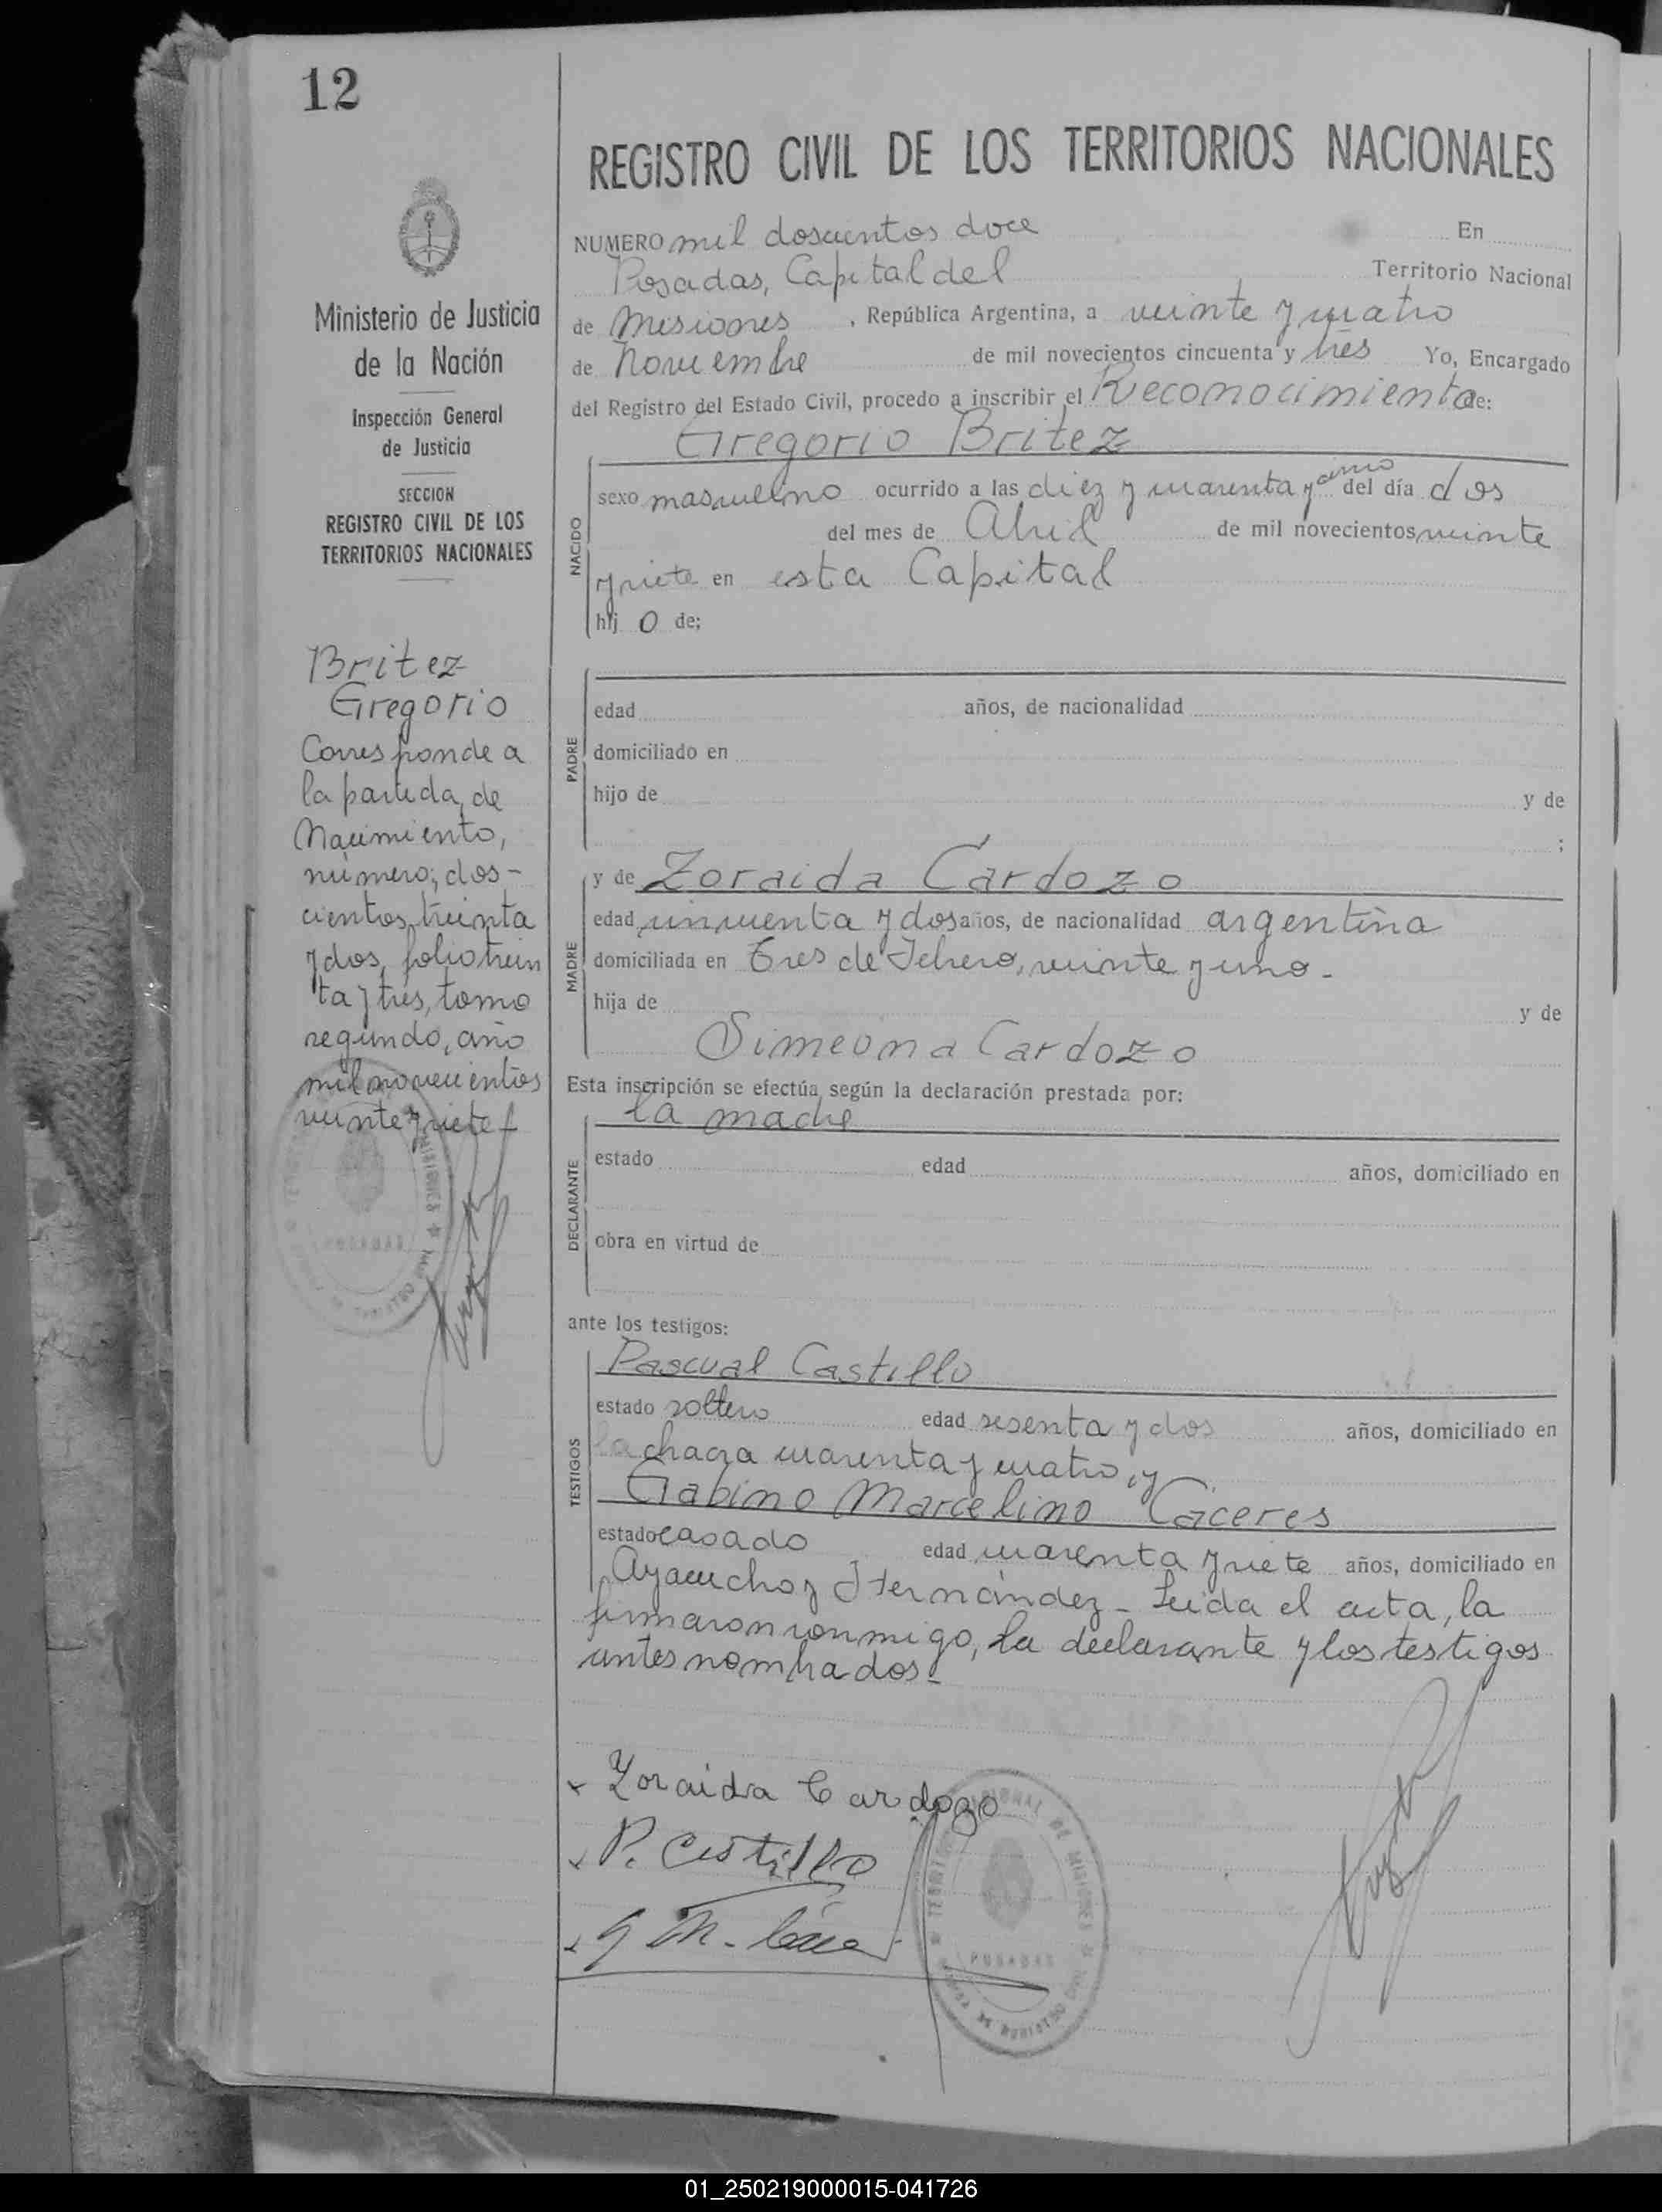 12
REGISTRO CIVIL DE LOS TERRITORIOS NACIONALES
NUMERO mil doscientos doce En
Posadas, Capital del Territorio Nacional
de Misiones, República Argentina, a veinte y cuatro
de Noviembre de mil novecientos cincuenta y tres Yo, Encargado
del Registro del Estado Civil, procedo a inscribir el Reconocimiento de:
Gregorio Britez
NACIDO
sexo masculino ocurrido a las diez y cuarenta y cinco del día dos
del mes de Abril de mil novecientos veinte
y siete en esta Capital
hij o de;
PADRE
edad años, de nacionalidad
domiciliado en
hijo de y de
;
MADRE
y de Zoraida Cardozo
edad cincuenta y dos años, de nacionalidad argentina
domiciliada en Tres de Febrero, veinte y uno -
hija de y de
Simeona Cardozo
Esta inscripción se efectúa según la declaración prestada por:
la madre
DECLARANTE
estado edad años, domiciliado en
obra en virtud de
ante los testigos:
TESTIGOS
Pascual Castillo
estado soltero edad sesenta y dos años, domiciliado en
la chacra cuarenta y cuatro, y
Gabino Marcelino Caceres
estado casado edad cuarenta y siete años, domiciliado en
Ayacucho y Hernández - Leida el acta, la
firmaron conmigo, la declarante y los testigos
antes nombrados.-
Zoraida Cardozo
P. Castillo
G M.
POSADAS
Ministerio de Justicia
de la Nación
Inspección General
de Justicia
SECCION
REGISTRO CIVIL DE LOS
TERRITORIOS NACIONALES
Britez
Gregorio
Corresponde a
la partida, de
Nacimiento,
número; dos-
cientos, treinta
y dos, folio trein
ta y tres, tomo
segundo, año
mil novecientos
veinte y siete -
01_250219000015-041726